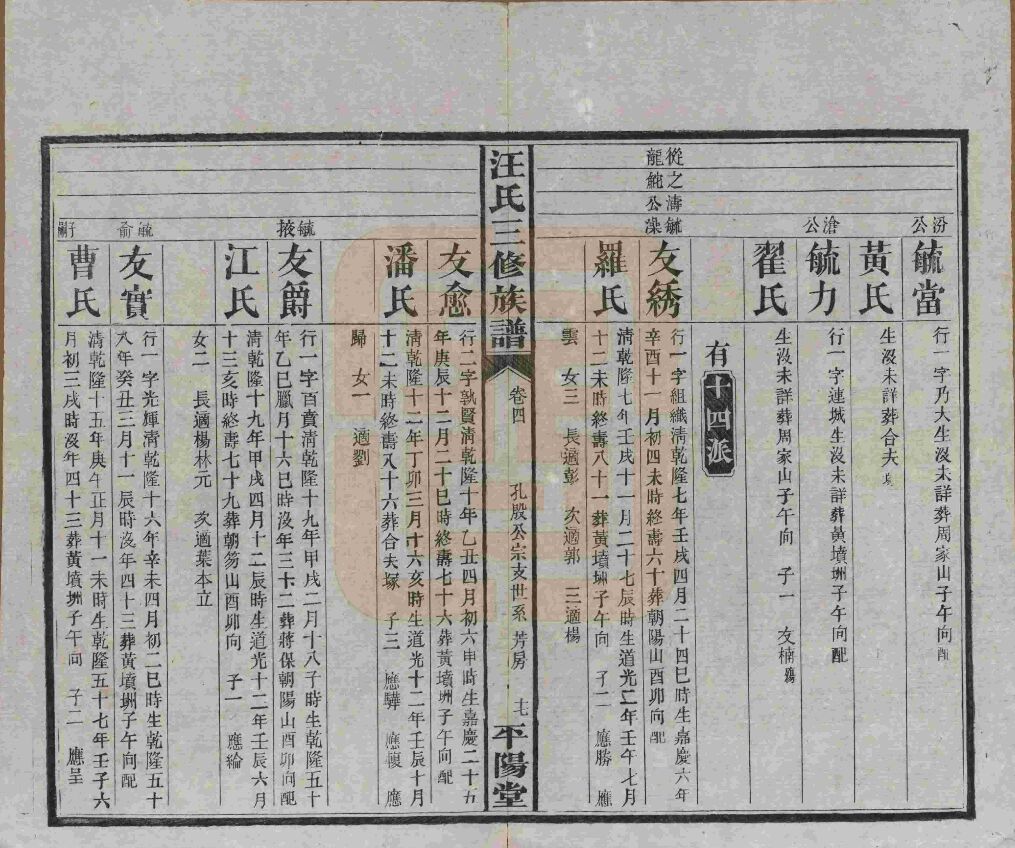 汾公
毓當
行一字乃大生沒未詳葬周家山子午向配
黃氏
生沒未詳葬合夫塚
滄公
毓力
行一字連城生沒未詳葬黃墳坳子午向配
翟氏
生沒未詳葬周家山子午向 子一 友楠殤
有十四派
從之濤毓
龍毓公澡
友綉
行一字組織清乾隆七年壬戌四月二十四巳時生嘉慶六年
辛酉十一月初四未時終壽六十葬朝陽山酉卯向配
羅氏
清乾隆七年壬戌十一月二十七辰時生道光二年壬午七月
十二未時終壽八十一葬黃墳坳子午向 子二 應勝 應
雲 女三 長適彭 次適郭 三適楊
汪氏三修族譜
卷四
孔殷公宗支世系 芳房
平陽堂
友愈
行二字執賢清乾隆十年乙丑四月初六申時生嘉慶二十五
年庚辰十二月二十巳時終壽七十六葬黃墳坳子午向配
潘氏
清乾隆十二年丁卯三月十六亥時生道光十二年壬辰十月
十二未時終壽八十六葬合夫塚 子三 應驊 應 應
歸 女一 適劉
毓掖
友爵
行一字百賁清乾隆十九年甲戌二月十八子時生乾隆五十
年乙巳臘月十六巳時沒年三十二葬蔣保朝陽山酉卯向配
江氏
清乾隆十九年甲戌四月十二辰時生道光十二年壬辰六月
十三亥時終壽七十九葬朝笏山酉卯向 子一 應綸
女二 長適楊林元 次適葉本立
毓俞
友實
行一字光輝清乾隆十六年辛未四月初二巳時生乾隆五十
八年癸丑三月十一辰時沒年四十三葬黃墳坳子午向配
子嗣
曹氏
清乾隆十五年庚午正月十一未時生乾隆五十七年壬子六
月初三戌時沒年四十三葬黃墳坳子午向 子二 應呈